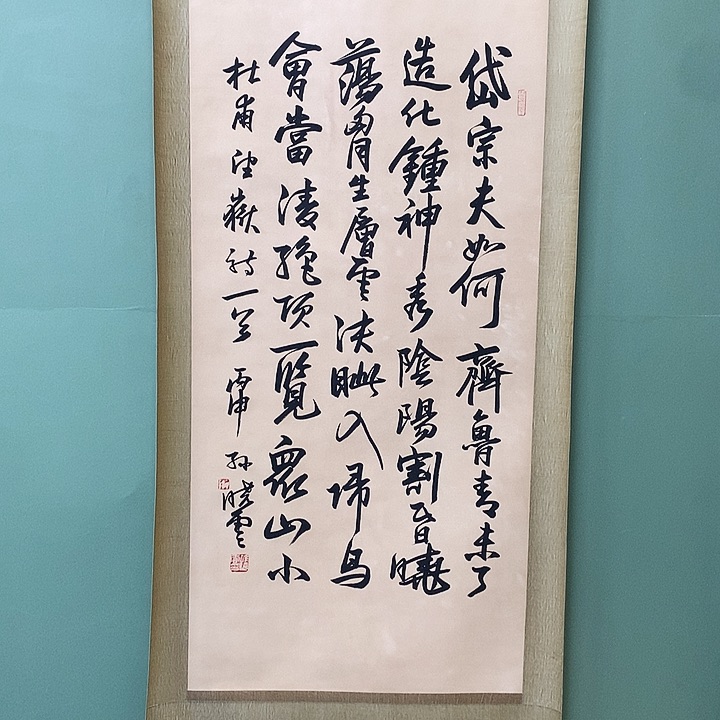 岱宗夫如何齊魯青未了
造化鍾神秀陰陽割昏曉
蕩胷生層雲決眦入歸鳥
會當凌絕頂一覽衆山小
杜甫望嶽詩一首 丙申 孫曉雲